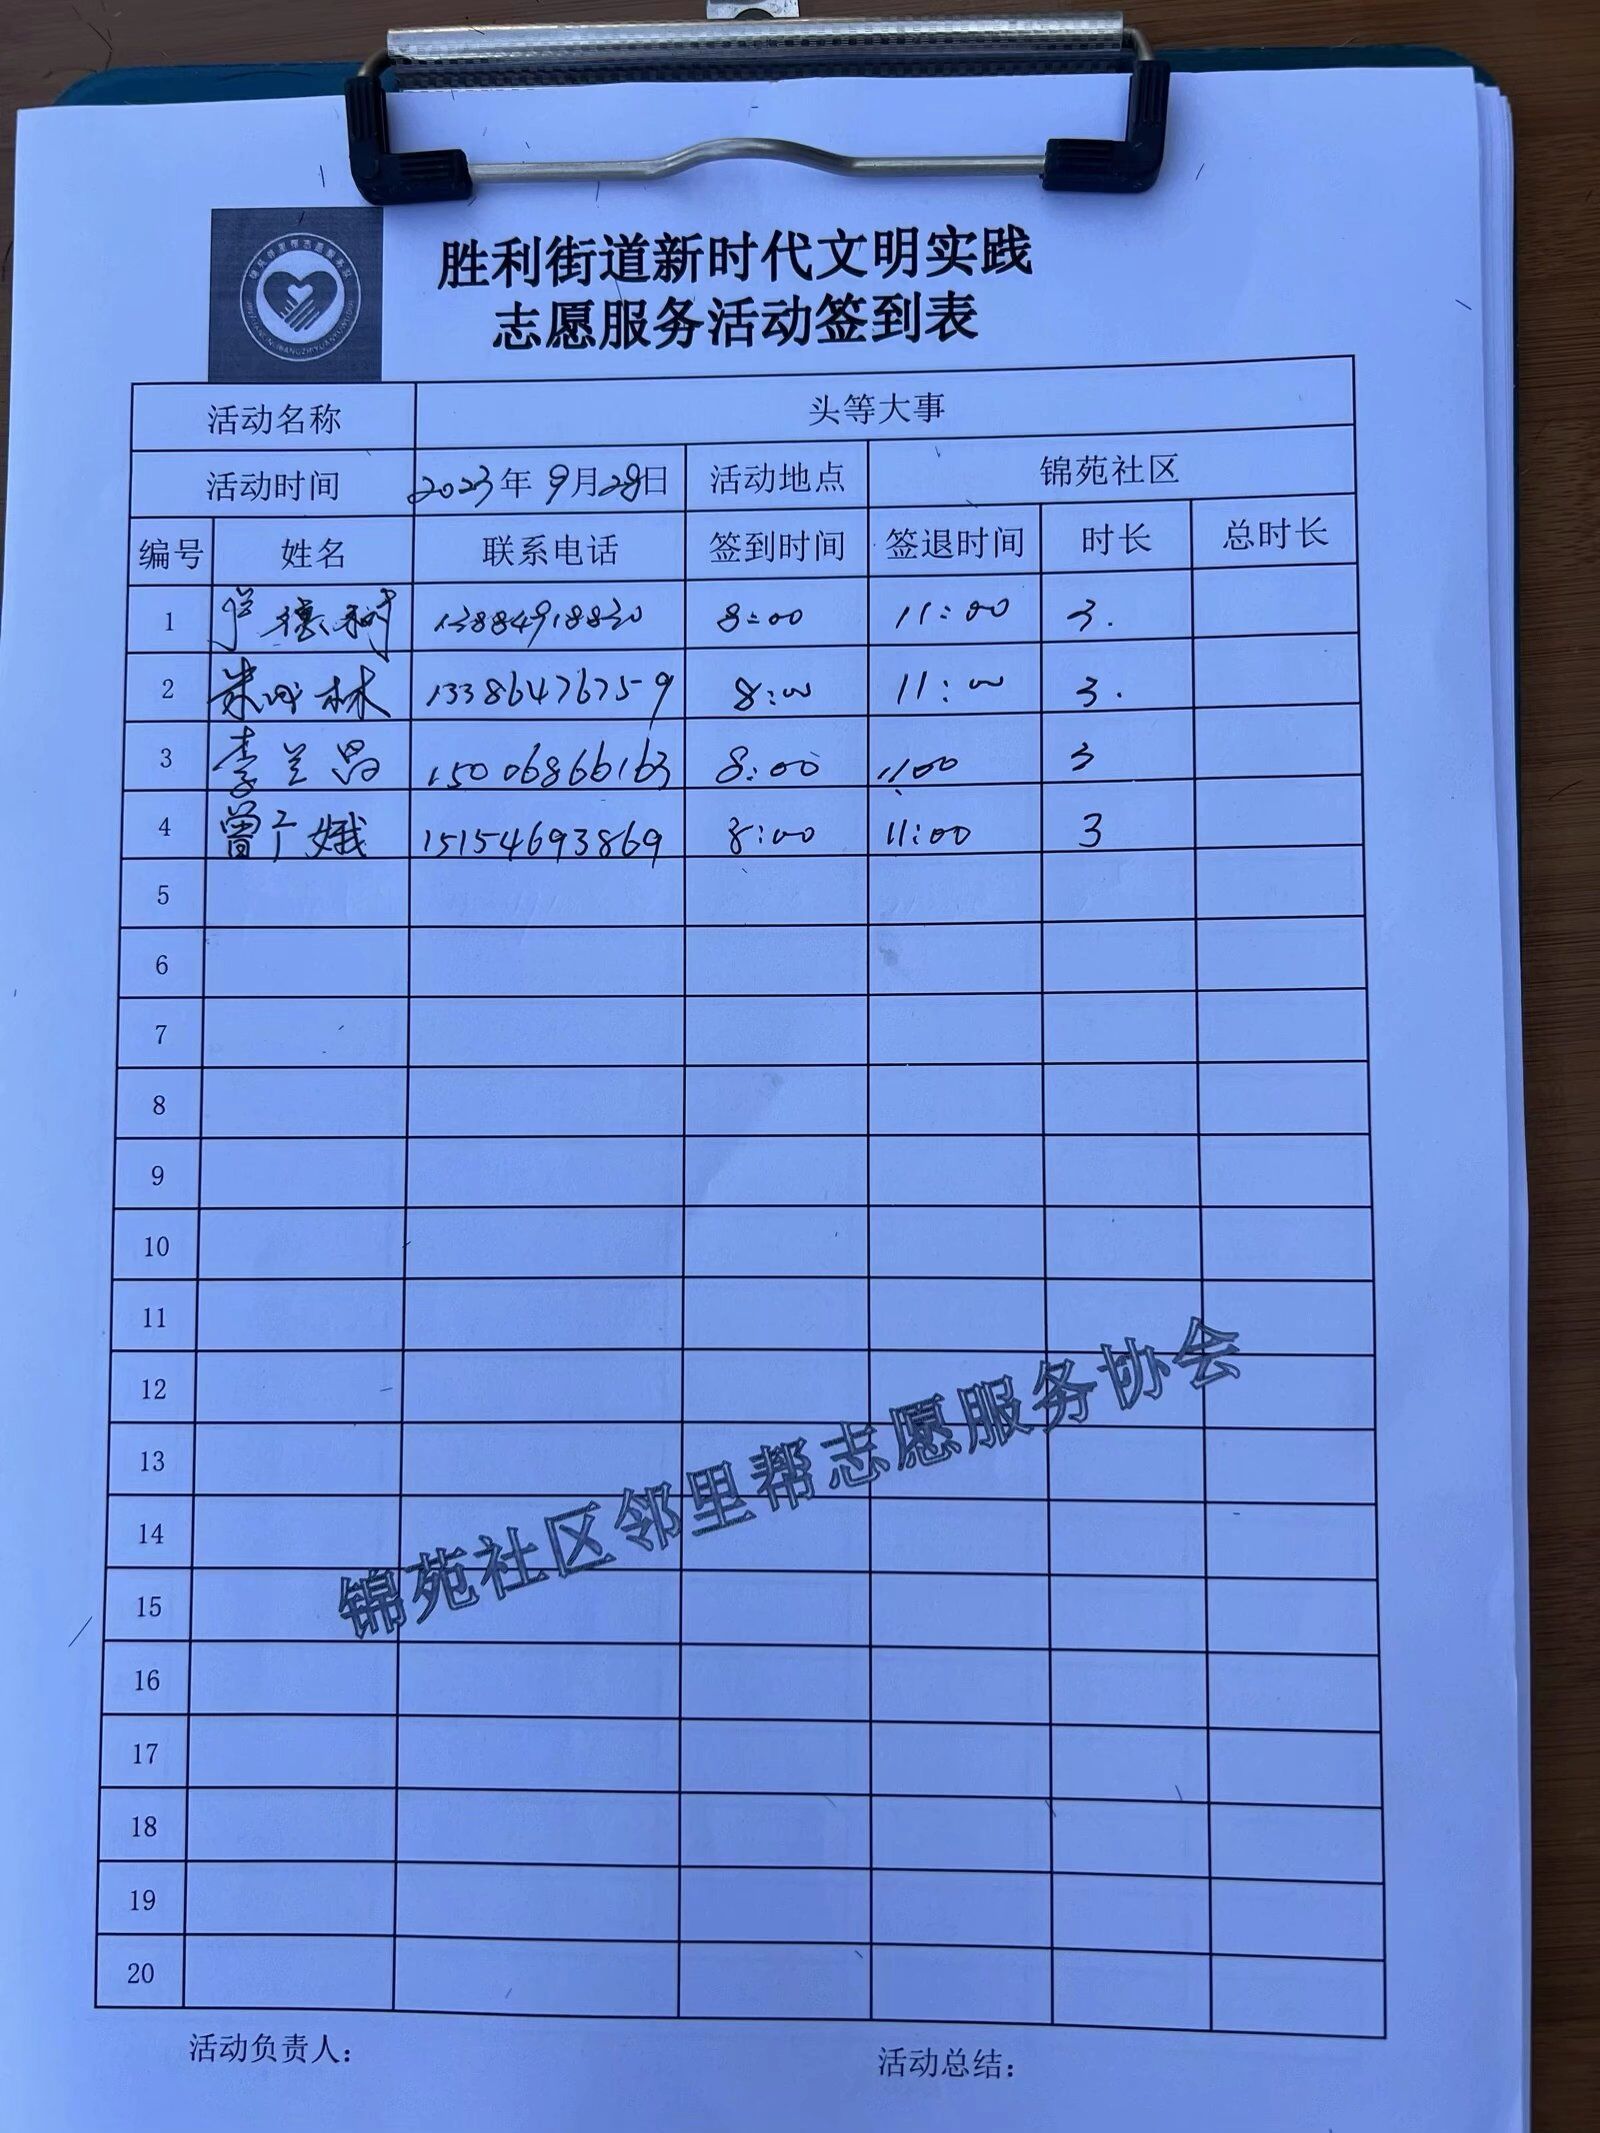 胜利街道新时代文明实践
志愿服务活动签到表
活动名称 头等大事
活动时间 2023年9月28日 活动地点 锦苑社区
编号 姓名 联系电话 签到时间 签退时间 时长 总时长
1 13884918830 8:00 11:00 3.
2 林 13386476759 8:00 11:00 3.
3 李兰昌 15006866163 8:00 11:00 3
4 曾广娥 15154693869 8:00 11:00 3
5
6
7
8
9
10
11
12
13
14
15
16
17
18
19
20
锦苑社区邻里帮志愿服务协会
活动负责人：
活动总结：